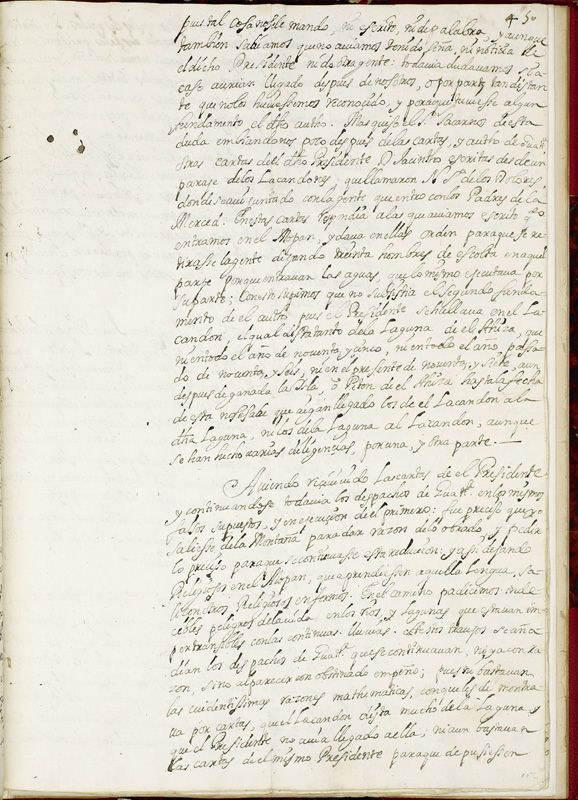 450
pues tal cosa no se le mando, ni escrito, ni de palabra, y aunque
tambien sabiamos que no aviamos tenido seña, ni noticia de
el dicho Presidente ni de otra gente: todavia dudavamos, si a
caso avrian llegado despues de nosotros, o por parte tan distan
te que no los huviessemos reconocido, y para que tuviesse algun
fundamento el dho autho. Mas quiso el Sr sacarnos de esta
duda embiandonos poco despues de las cartas, y autho de Guatta
otras cartas del dho Presidente D. Jacintto escritas desde un
paraje de los Lacandones, que llamaron N. S. de los Dolores
donde se avia juntado con la gente que entro con los Padres de la
Merced. En estas cartas respondia a las que aviamos escrito qdo
entramos en el Mopan, y dava en ellas orden para que se re
tirasse la gente dejando treinta hombres de escolta en aquel
parte porque entravan las aguas, que lo mismo executava por
su parte; Con esto supimos que no subsistia el segundo funda
mento de el autho, pues el Presidente se hallava en el La
candon, el qual dista tanto de la Laguna de el Ahiza, que
ni en todo el año de noventa, y cinco, ni en todo el año passa
do de noventa, y seis, ni en el presente de noventa, y siete aun
despues de ganada la Isla o Peten de el Ahiza hasta la fecha
de esta no se sabe que aigan llegado los de el Lacandon a la
dha Laguna, ni los de la Laguna al Lacandon, aunque
se han hecho varias diligencias, por una, y otra parte.
Aviendo recivido las cartas de el Presidente
y continuandose todavia los despachos de Guatta en los mismos
falsos supuestos, y en execucion de el primero: fue preciso que yo
saliesse de la Montaña para dar razon de lo obrado, y pedir
lo preciso para que se continuasse esta reduccion: y assi dejando
Religiosos en el Mopan, que aprendiessen aquella lengua, sa
li con otros Religiosos enfermos. En el camino padecimos inde
cibles peligros de la vida, en los rios, y lagunas que estavan im
pertransibles con las continuas lluvias. A estos travajos se aña
dian los despachos de Guatta que se continuavan, ni ya con ra
zon, sino al parecer con obstinado empeño; pues no bastavan
las evidentissimas razones mathematicas, con que les demostra
va por cartas, que el Lacandon dista mucho de la Laguna, y
que el Presidente no avia llegado a ella; ni aun bastavan
las cartas de el mismo Presidente para que depusiessen